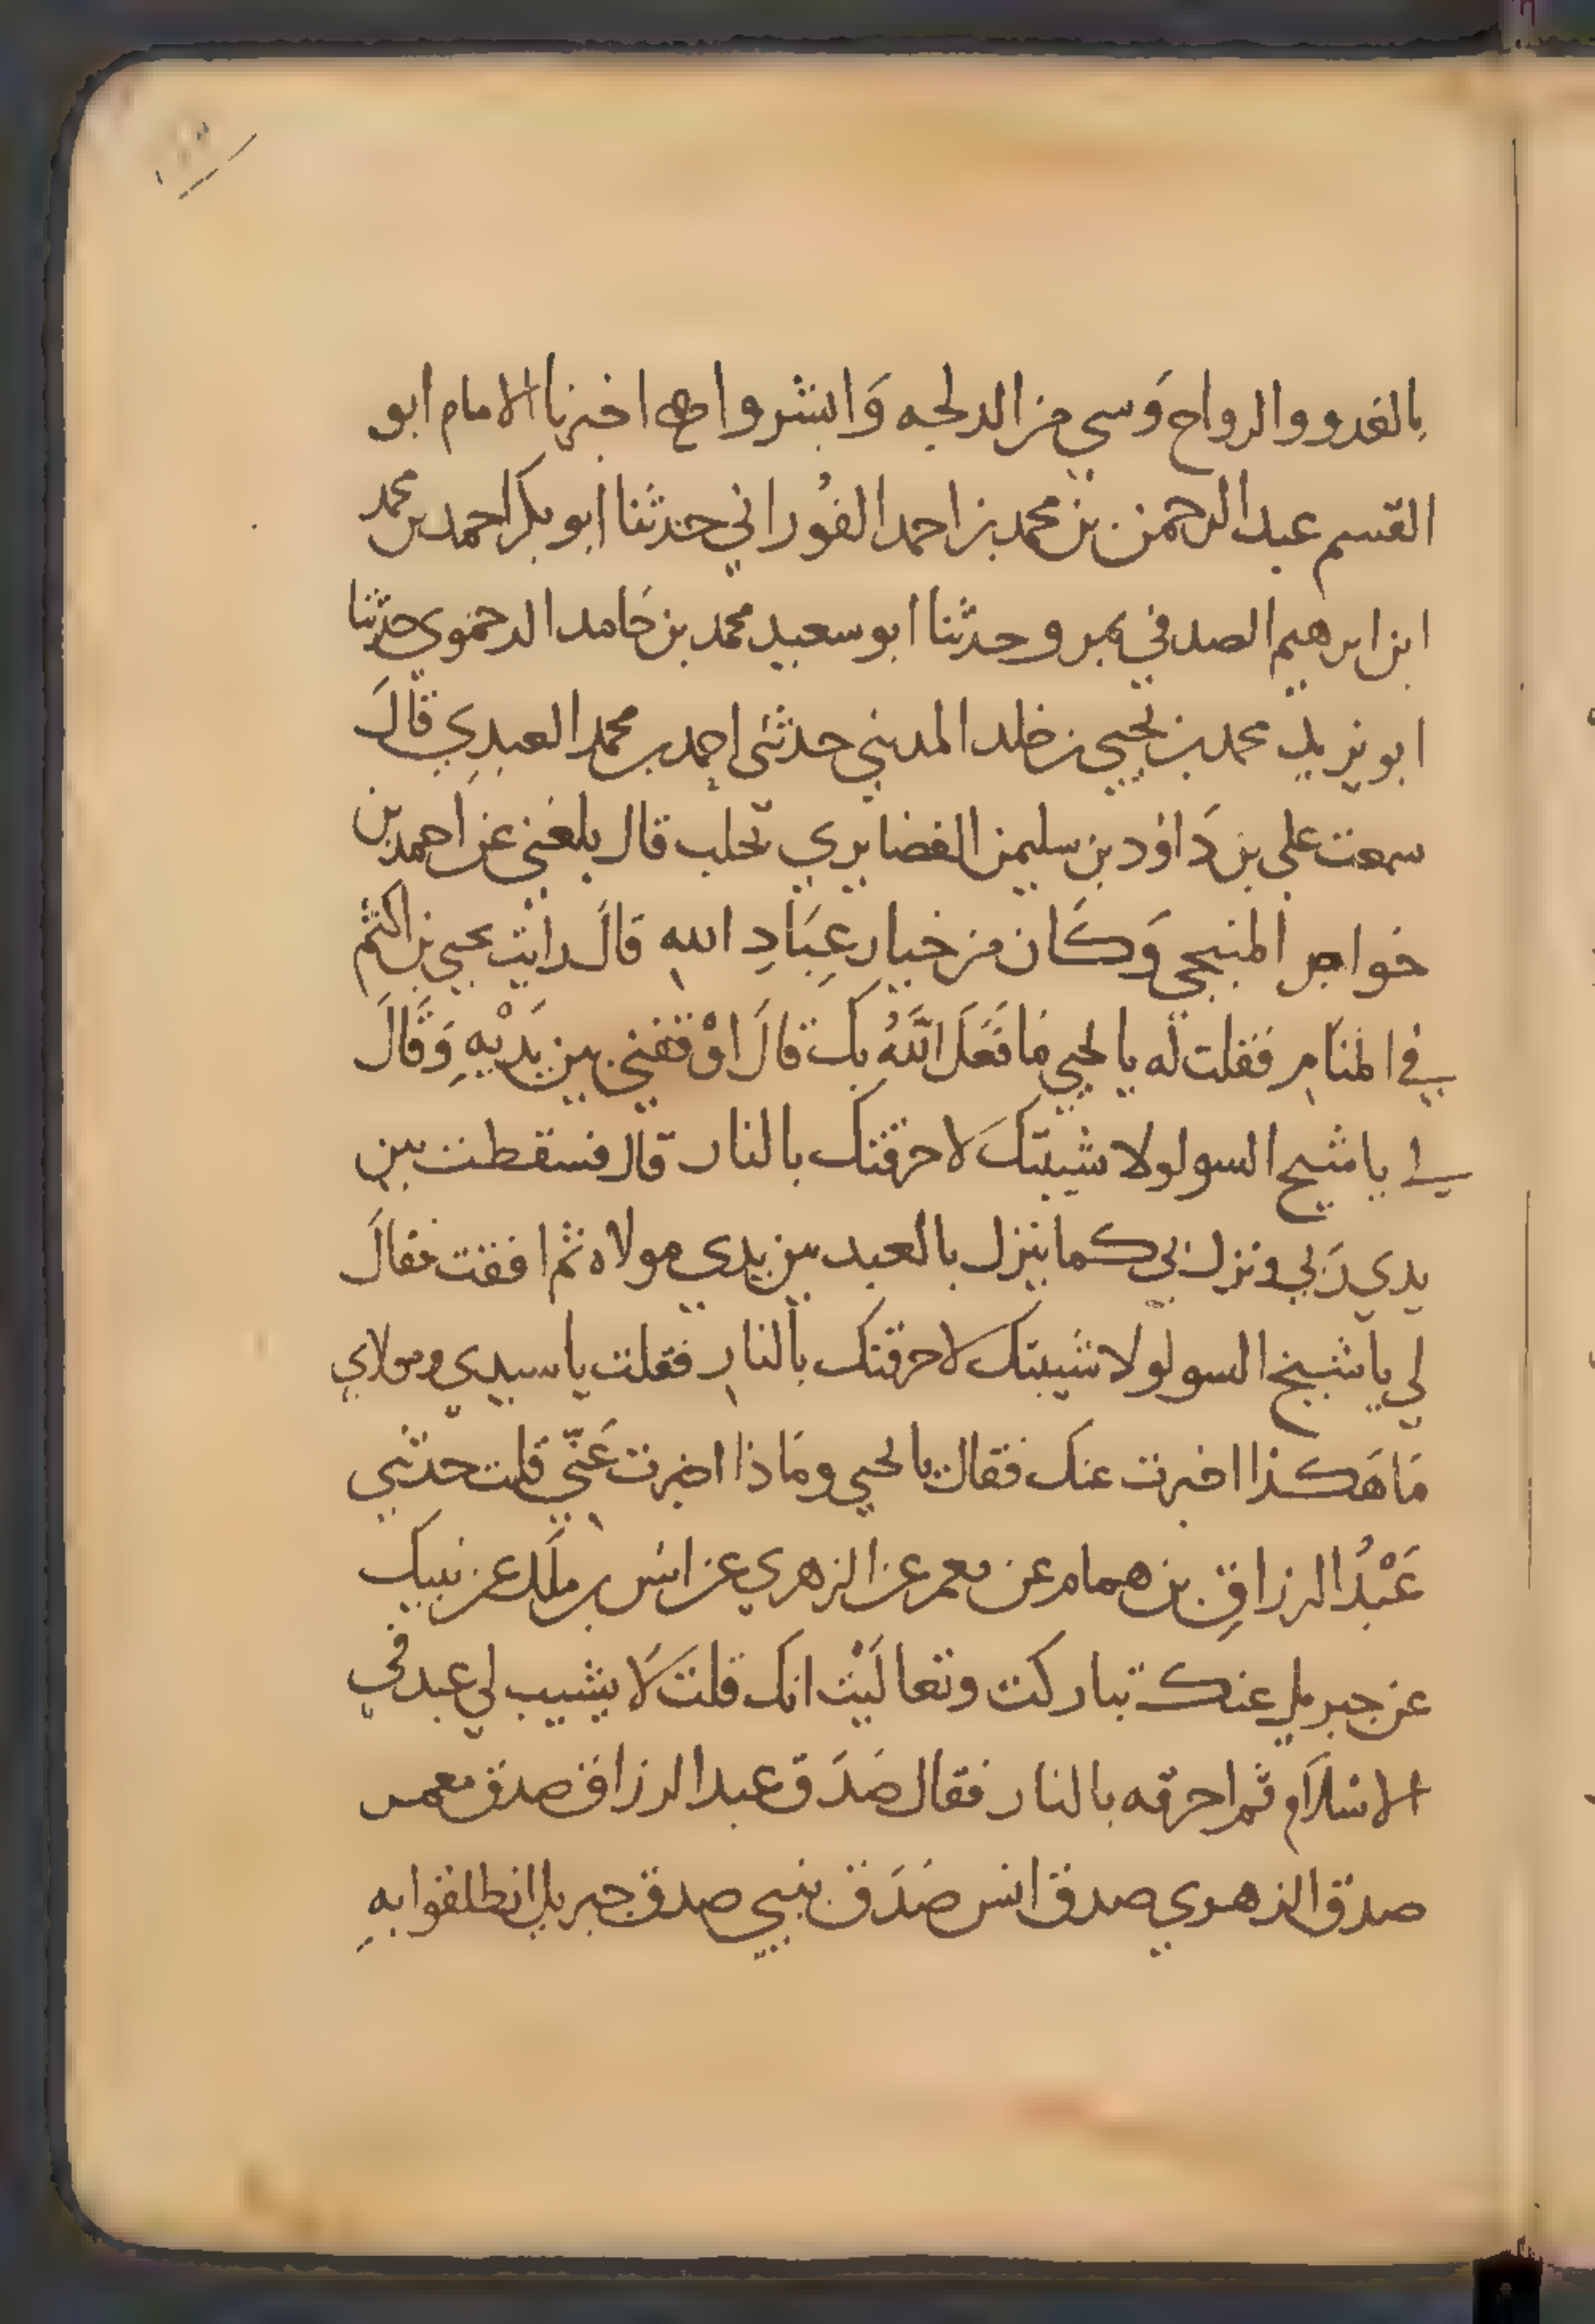 بالغدو والرواح وَسي من الدلجه وَابشروا اخبرنا الامام ابو
القسم عبد الرحمن بن محمد بن احمد الفُوراني حدثنا ابو بكر احمد بن محمد
ابن ابرهيم الصدفي بمرو حدثنا ابو سعيد محمد بن حَامد
حدثنا
ابو يزيد محمد بن يحيي بن خلد المديني حدثني احمد بن محمد العبدِي قالَ
سمعت علي بن دَاوُد بن سليمن الغضايري بحلب قال بلغني عن احمد بن
المنبجي وَكَان من خيارِ عِبَادِ اللهِ قالَ رايت يحيي بن اكثم
في المنَامِ فقلت له يا يحيي مَا فَعَلَ اللَّهُ بك قالَ اوْقفني بين يَديْهِ وَقَالَ
لي يا شيخ السو لولا شيبتكَ لاحرقتك بالنار قال فسقطت بين
يدي رَبي ونزل بي كما ينزل بالعبد بين يدي مولاه ثم افقت فقالَ
لي يا شيخ السو لولا شيبتك لاحرقتك بالنارِ فقلت يا سيدي ومولاي
مَا هَكذا اخبرت عنك فقال يا يحيي ومَاذا اخبرت عَنّي قلت حدثني
عَبْدُ الرزاقِ بن همام عن معمر عن الزهري عن انس بن ملك عن نبيك
عن جبريل عنك تباركت وتعالَيْت انك قلتَ لَا يشيب لي عبد في
الاسْلَام ثم احرقه بالنار فقال صَدَق عبد الرزاق صدق معمر
صدق الزهري صدق انس صَدَق نبيي صدق جبريل انطلقوا بهِ